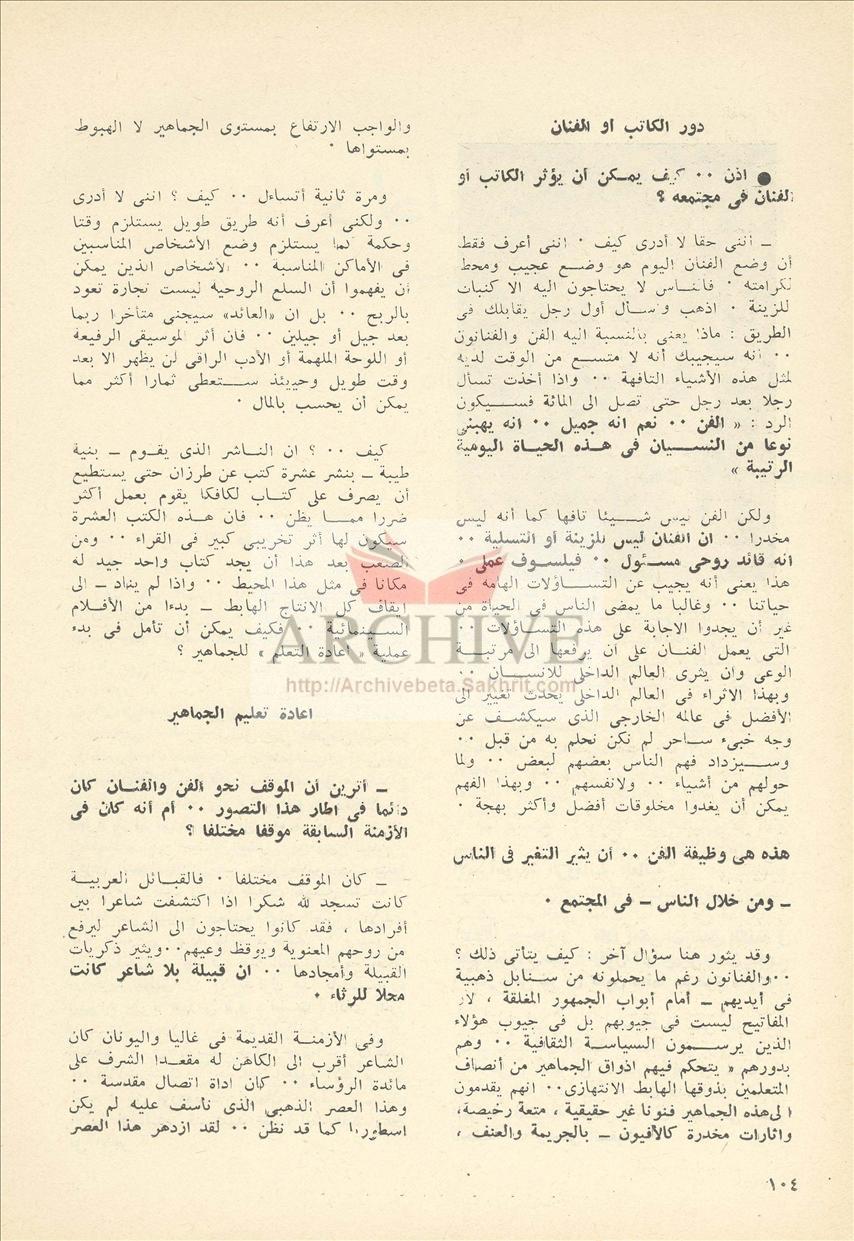 دور الكاتب او الفنان
● اذن ٠٠ كيف يمكن أن يؤثر الكاتب أو
الفنان فى مجتمعه ؟
ـ أننى حقا لا أدرى كيف ٠ اننى أعرف فقط
أن وضع الفنان اليوم هو وضع عجيب ومحط
لكرامته ٠ فالناس لا يحتاجون اليه الا كنبات
للزينة ٠ اذهب واسأل أول رجل يقابلك فى
الطريق : ماذا يعنى بالنسبة اليه الفن والفنانون
٠٠ انه سيجيبك أنه لا متسع من الوقت لديه
لمثل هذه الأشياء التافهة ٠٠ واذا أخذت تسأل
رجلا بعد رجل حتى تصل الى المائة فسيكون
الرد : « الفن ٠٠ نعم انه جميل ٠٠ انه يهبنى
نوعا من النسيان فى هذه الحياة اليومية
الرتيبة »
ولكن الفن ليس شيئا تافها كما أنه ليس
مخدرا ٠٠ ان الفنان ليس للزينة أو التسلية ٠٠
انه قائد روحى مسئول ٠٠ فيلسوف عملى ٠
هذا يعنى أنه يجيب عن التساؤلات الهامة فى
حياتنا ٠٠ وغالبا ما يمضى الناس فى الحياة من
غير أن يجدوا الاجابة على هذه التساؤلات ٠٠
التى يعمل الفنان على ان يرفعها الى مرتبة
الوعى وان يثرى العالم الداخلى للانسان ٠٠
وبهذا الاثراء فى العالم الداخلى يحدث تغيير الى
الأفضل فى عالمه الخارجى الذى سيكشف عن
وجه خبىء ساحر لم نكن نحلم به من قبل ٠٠
وسيزداد فهم الناس بعضهم لبعض ٠٠ ولما
حولهم من أشياء ٠٠ ولانفسهم ٠٠ وبهذا الفهم
يمكن أن يغدوا مخلوقات أفضل وأكثر بهجة ٠
هذه هى وظيفة الفن ٠٠ أن يثير التغير فى الناس
ـ ومن خلال الناس ـ فى المجتمع ٠
وقد يثور هنا سؤال آخر : كيف يتأتى ذلك ؟
٠٠والفنانون رغم ما يحملونه من سنابل ذهبية
فى أيديهم ـ أمام أبواب الجمهور المغلقة ، لأن
المفاتيح ليست فى جيوبهم بل فى جيوب هؤلاء
الذين يرسمون السياسة الثقافية ٠٠ وهم
بدورهم « يتحكم فيهم اذواق الجماهير من أنصاف
المتعلمين بذوقها الهابط الانتهازى٠٠ انهم يقدمون
الى هذه الجماهير فنونا غير حقيقية ، متعة رخيصة،
واثارات مخدرة كالأفيون ـ بالجريمة والعنف ،
والواجب الارتفاع بمستوى الجماهير لا الهبوط
بمستواها ٠
ومرة ثانية أتساءل ٠٠ كيف ؟ اننى لا أدرى
٠٠ ولكنى أعرف أنه طريق طويل يستلزم وقتا
وحكمة كما يستلزم وضع الأشخاص المناسبين
فى الأماكن المناسبة ٠٠ الأشخاص الذين يمكن
أن يفهموا أن السلع الروحية ليست تجارة تعود
بالربح ٠٠ بل ان «العائد» سيجنى متأخرا ربما
بعد جيل أو جيلين ٠٠ فان أثر الموسيقى الرفيعة
أو اللوحة الملهمة أو الأدب الراقى لن يظهر الا بعد
وقت طويل وحينئذ ستعطى ثمارا أكثر مما
يمكن أن يحسب بالمال ٠
كيف ٠٠ ؟ ان الناشر الذى يقوم ـ بنية
طيبة ـ بنشر عشرة كتب عن طرزان حتى يستطيع
أن يصرف على كتاب لكافكا يقوم بعمل أكثر
ضررا مما يظن ٠٠ فان هذه الكتب العشرة
سيكون لها أثر تخريبى كبير فى القراء ٠٠ ومن
الصعب بعد هذا أن يجد كتاب واحد جيد له
مكانا فى مثل هذا المحيط ٠٠ واذا لم يناد ـ الى
ايقاف كل الانتاج الهابط ـ بدءا من الأفلام
السينمائية ٠٠ فكيف يمكن أن تأمل فى بدء
عملية « اعادة التعلم » للجماهير ؟
اعادة تعليم الجماهير
ـ أترين أن الموقف نحو الفن والفنان كان
دائما فى اطار هذا التصور ٠٠ أم أنه كان فى
الأزمنة السابقة موقفا مختلفا ؟
ـ كان الموقف مختلفا ٠ فالقبائل العربية
كانت تسجد لله شكرا اذا اكتشفت شاعرا بين
أفرادها ، فقد كانوا يحتاجون الى الشاعر ليرفع
من روحهم المعنوية ويوقظ وعيهم٠٠ويثير ذكريات
القبيلة وأمجادها ٠٠ ان قبيلة بلا شاعر كانت
محلا للرثاء ٠
وفى الأزمنة القديمة فى غاليا واليونان كان
الشاعر أقرب الى الكاهن له مقعد الشرف على
مائدة الرؤساء ٠٠ كان اداة اتصال مقدسة ٠٠
وهذا العصر الذهبى الذى نأسف عليه لم يكن
اسطوريا كما قد نظن ٠٠ لقد ازدهر هذا العصر
ARCHIVE
http://Archivebeta.Sakhrit.com
١٠٤